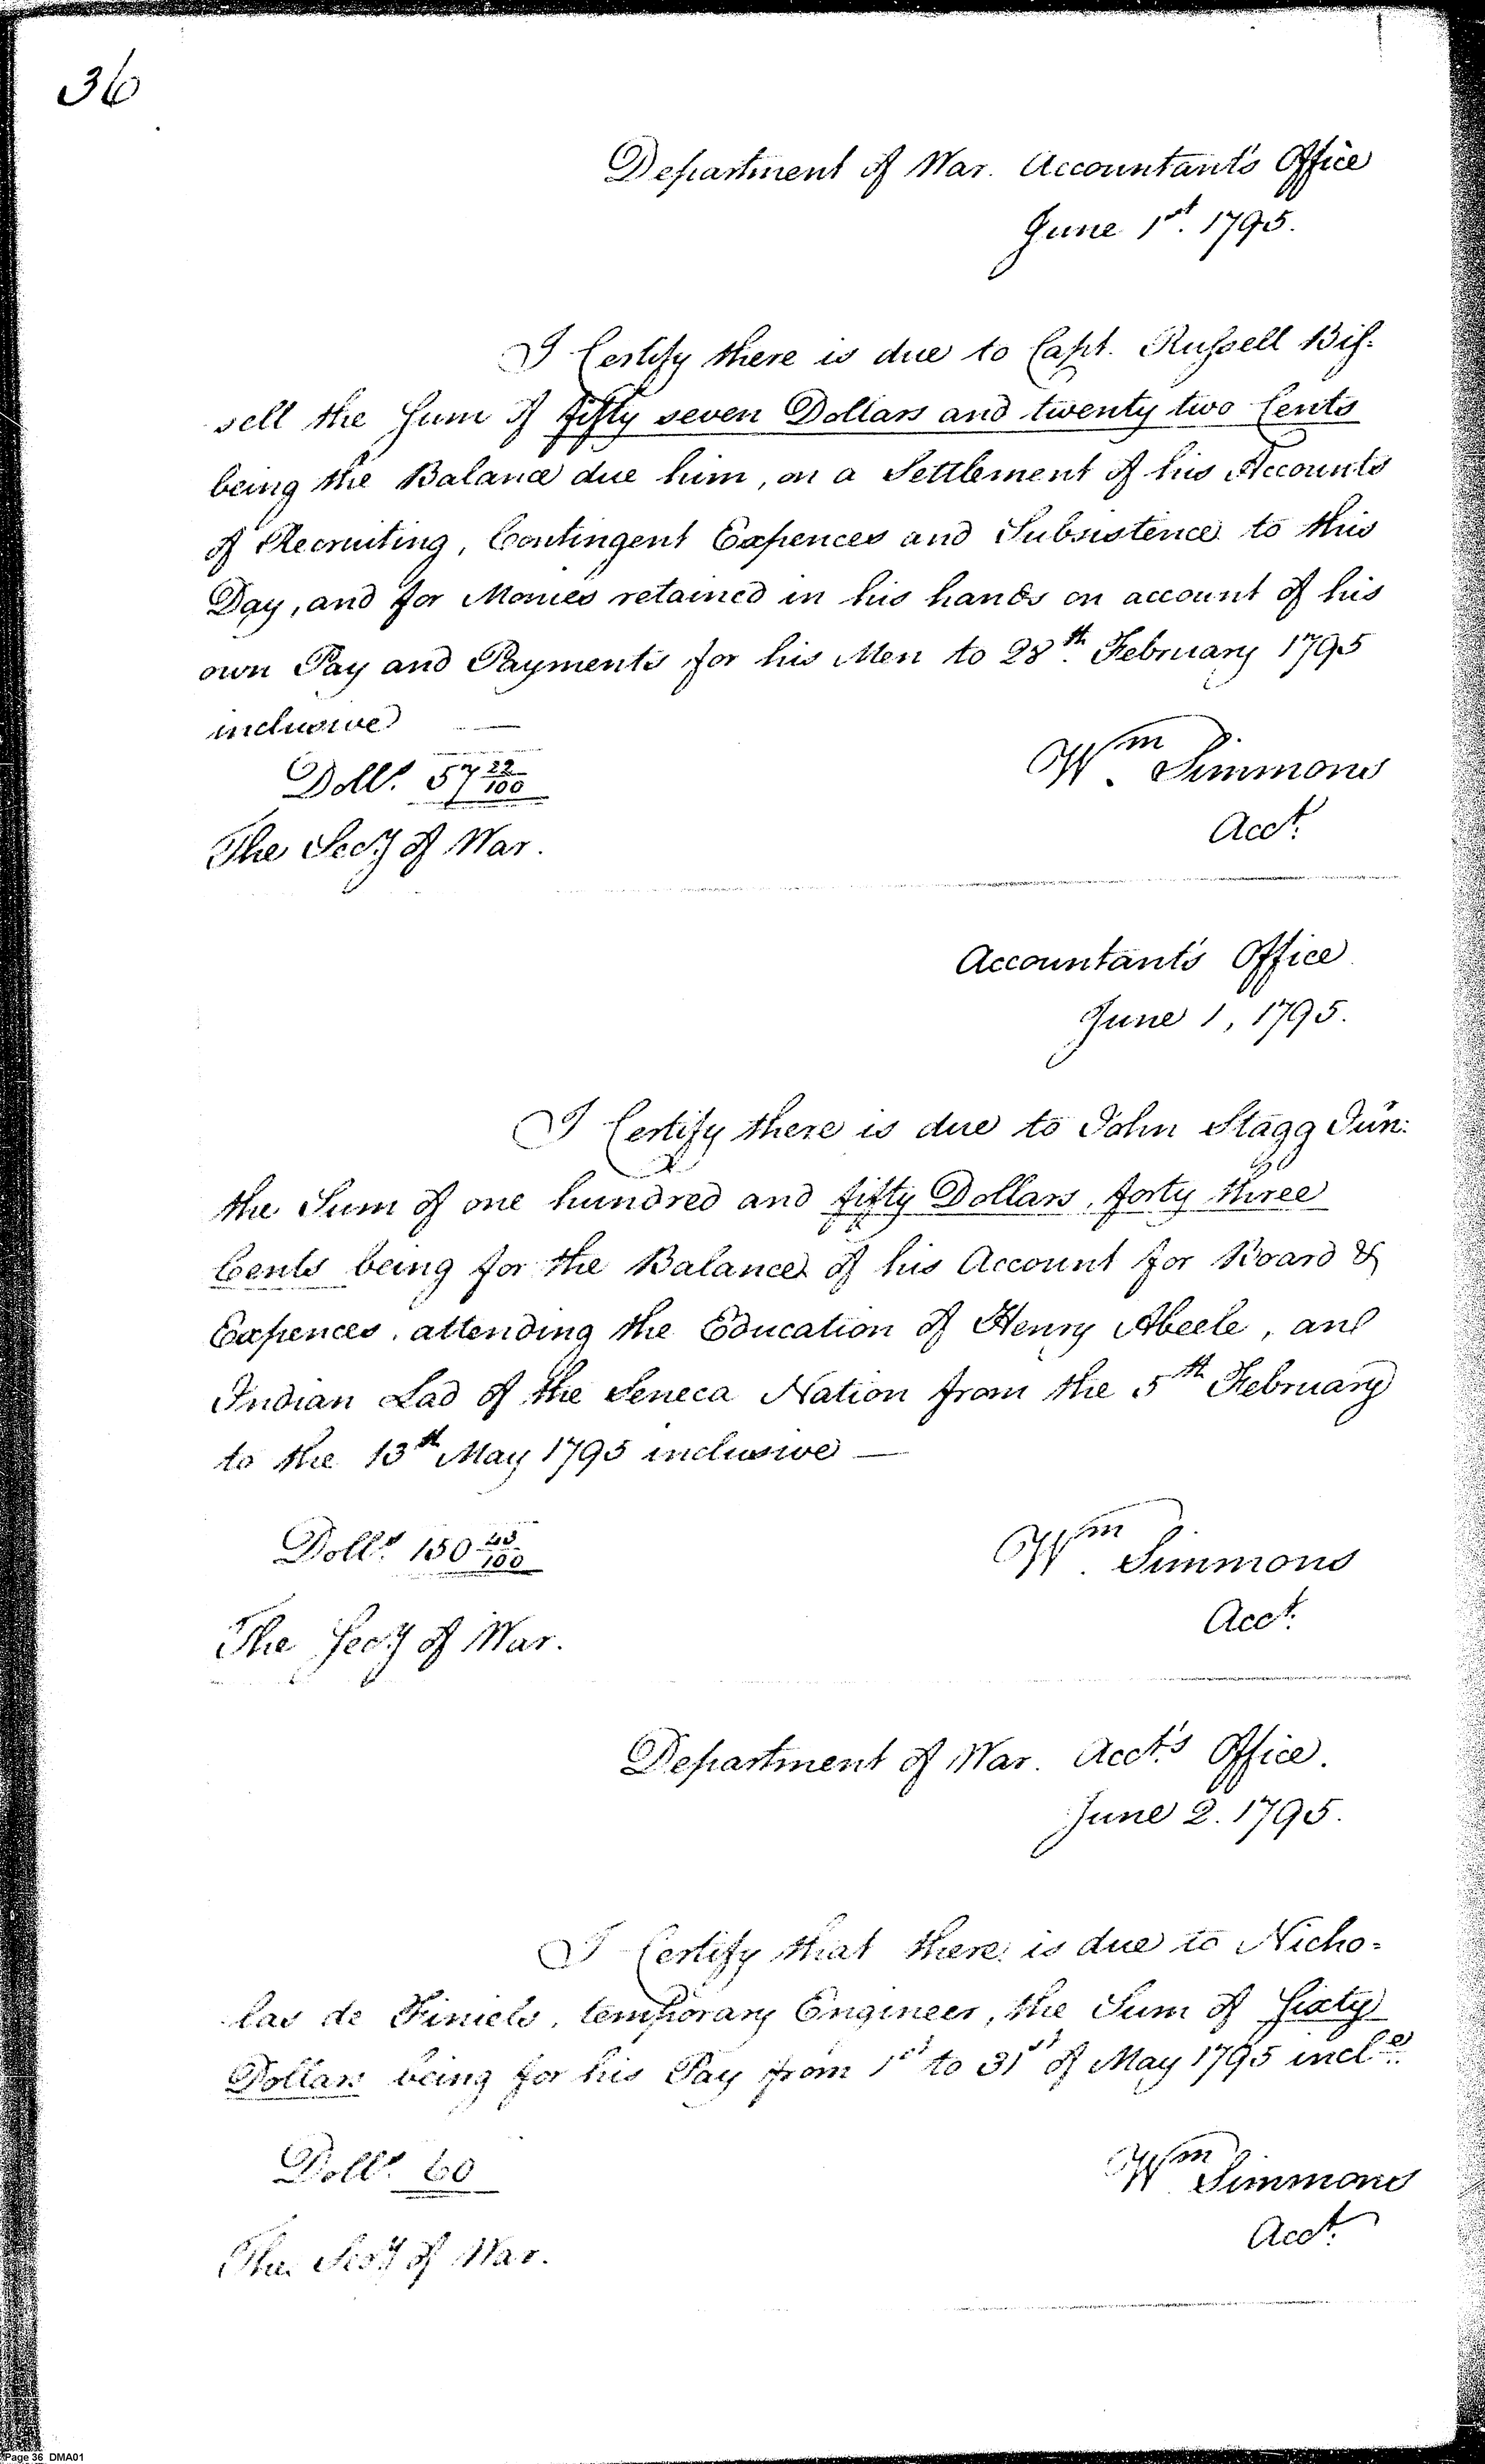 36
Department of War. Accountant's Office
June 1st. 1795.
I Certify there is due to Capt. Russell Bis-
sell the Sum of fifty seven Dollars and twenty two Cents
being the Balance due him, on a Settlement of his Accounts
of Recruiting, Contingent Expences and Subsistence to this
Day, and for Monies retained in his hands on account of his
own Pay and Payments for his Men to 28th. February 1795
inclusive —
Dolls. 57 22/100
Wm. Simmons
Acct.
The Secy of War.
Accountant's Office
June 1, 1795.
I Certify there is due to John Stagg Jun:
the Sum of one hundred and fifty Dollars, forty three
Cents being for the Balance of his Account for Board &
Expences, attending the Education of Henry Abeele, an
Indian Lad of the Seneca Nation from the 5th February
to the 13th May 1795 inclusive —
Dolls. 150 43/100
Wm. Simmons
Acct.
The Secy of War.
Department of War. Acct.'s Office.
June 2. 1795.
I Certify that there is due to Nicho=
las de Finiels, temporary Engineer, the Sum of Sixty
Dollars being for his Pay from 1st to 31st of May 1795 incle.
Dolls. 60
Wm Simmons
Acct.
The Secy of War.
Page 36 DMA01